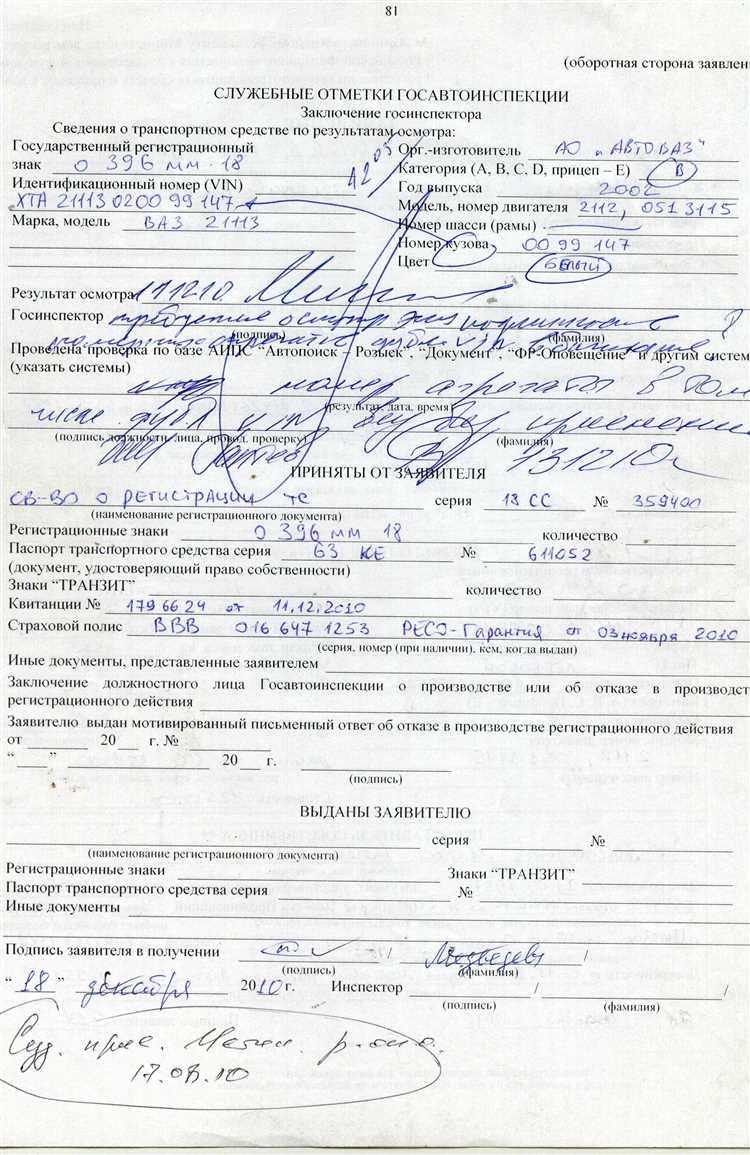 81
(оборотная сторона заявлен
СЛУЖЕБНЫЕ ОТМЕТКИ ГОСАВТОИНСПЕКЦИИ
Заключение госинспектора
Сведения о транспортном средстве по результатам осмотра:
Государственный регистрационный
знак О 396 ММ 18
Идентификационный номер (VIN)
ХТА 21113 0200 99 147
Марка, модель ВАЗ 21113
Орг.-изготовитель АО "АВТОВАЗ"
Категория (А, В, С, D, прицеп – Е) В
Год выпуска 2002
Модель, номер двигателя 2112, 0513115
Номер шасси (рамы)
Номер кузова 00 99 147
Цвет БЕЛЫЙ
Результат осмотра 171210
Госинспектор требуется осмотр
(подпись) (фамилия)
Проведена проверка по базе АИПС "Автопоиск – Розыск", "Документ", "ФР-Оповещение" и другим систем
(указать системы)
номер агрегата в том
(результат, дата, время)
числе дубл
(подпись должности. лица, провод. проверку) (фамилия)
ПРИНЯТЫ ОТ ЗАЯВИТЕЛЯ
СВ-ВО О РЕГИСТРАЦИИ ТС серия 18 СС № 359400
(наименование регистрационного документа)
Регистрационные знаки О 396 ММ 18 количество
Паспорт транспортного средства серия 63 КЕ № 611052
(документ, удостоверяющий право собственности)
Знаки "ТРАНЗИТ" количество
Квитанции № 1796624 от 11.12.2010
Страховой полис ВВВ 016 647 1253 РЕСО-Гарантия от 03 ноября 2010
(серия, номер (при наличии), кем, когда выдан)
Иные документы, представленные заявителем
Заключение должностного лица Госавтоинспекции о производстве или об отказе в производст
регистрационного действия
Заявителю выдан мотивированный письменный ответ об отказе в производстве регистрационного действия
от 20 г. №
" " 20 г.
(подпись)
ВЫДАНЫ ЗАЯВИТЕЛЮ
серия №
(наименование регистрационного документа)
Регистрационные знаки Знаки "ТРАНЗИТ"
Паспорт транспортного средства серия №
Иные документы
Подпись заявителя в получении / Медведев /
(подпись) (фамилия)
" 18 " декабря 2010 г. Инспектор / /
(подпись) (фамилия)
17.08.10